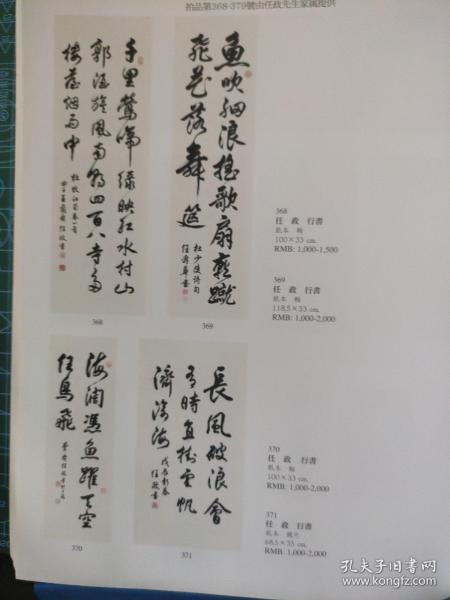 拍品第368-379號由任政先生家屬提供
千里鶯啼綠映紅水村山
郭酒旗風南朝四百八十寺多
樓臺烟雨中
杜牧江南春一首
368
魚吹細浪搖歌扇燕蹴
飛花落舞筵
杜少陵詩句
任政書
369
368
任 政 行書
紙本 軸
100×33 cm.
RMB: 1,000-1,500
369
任 政 行書
紙本 軸
118.5×33 cm.
RMB: 1,000-2,000
海闊憑魚躍天空
任鳥飛
370
長風破浪會
有時直掛雲帆
濟滄海
戊辰新春
任政書
371
370
任 政 行書
紙本 軸
100×33 cm.
RMB: 1,000-2,000
371
任 政 行書
紙本 鏡片
68.5×33 cm.
RMB: 1,000-2,000
孔夫子旧书网
www.kongfz.com